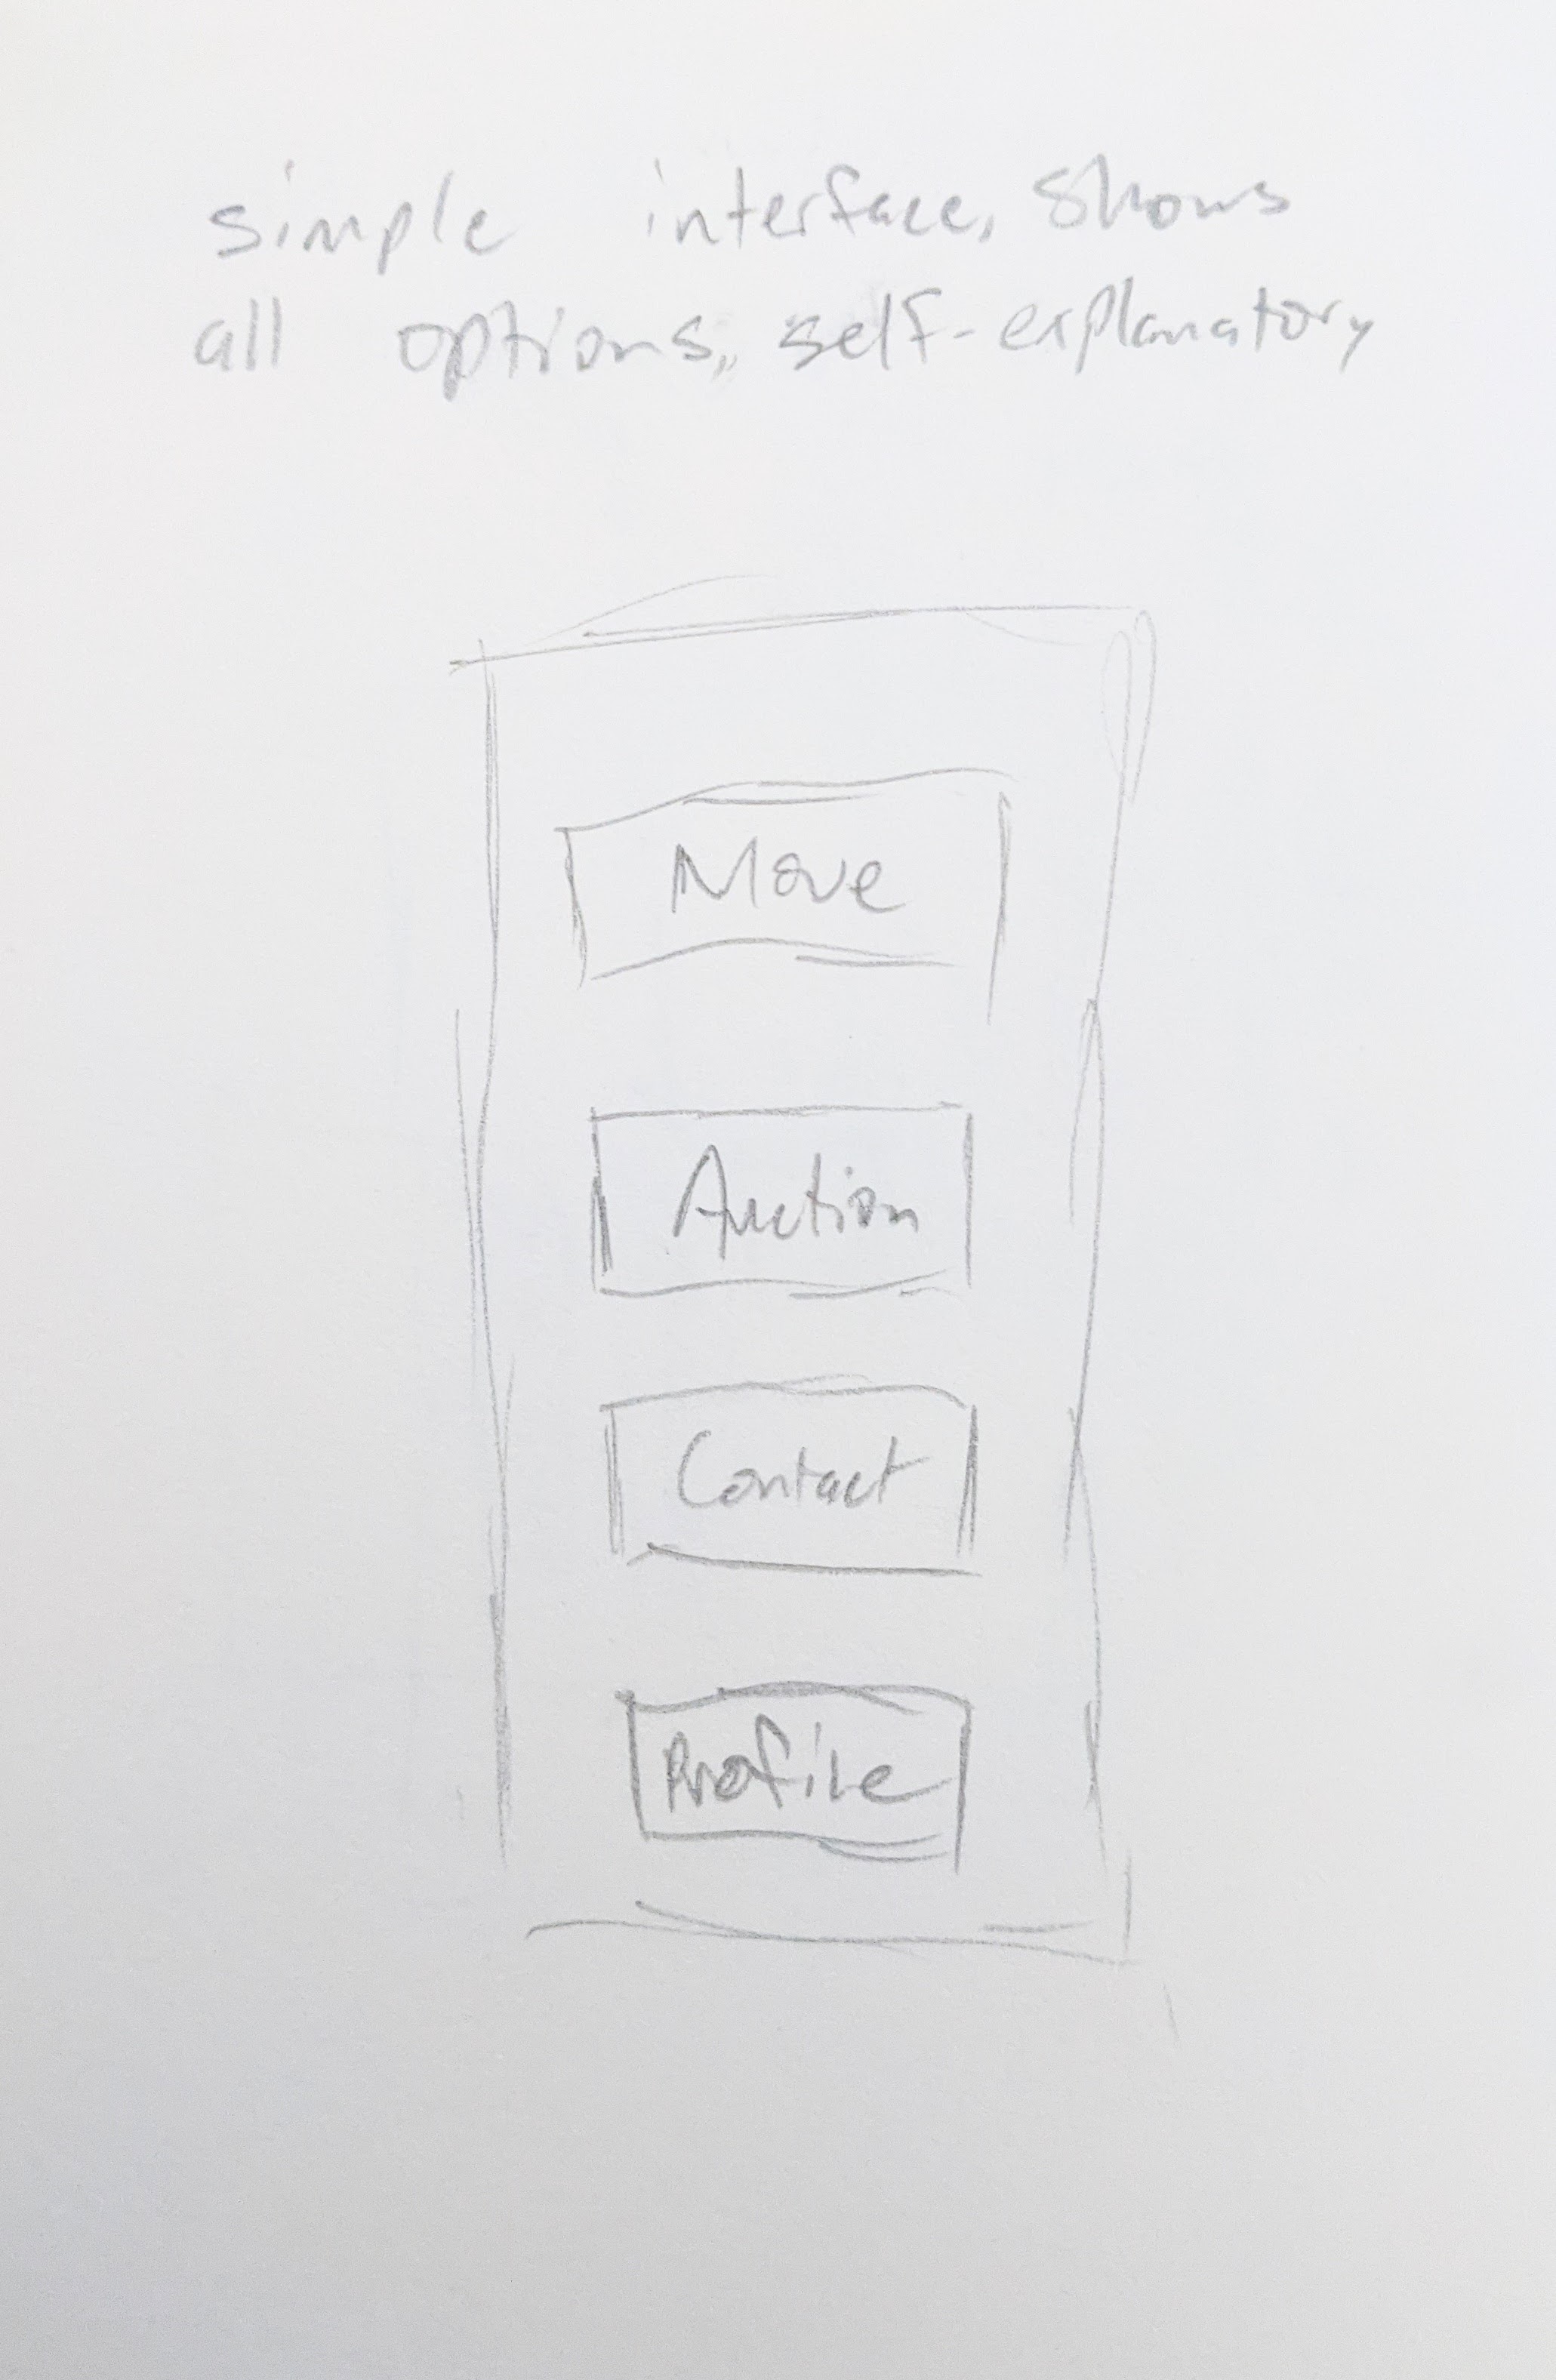 simple interface, shows
all options, self-explanatory
Move
Auction
Contact
Profile